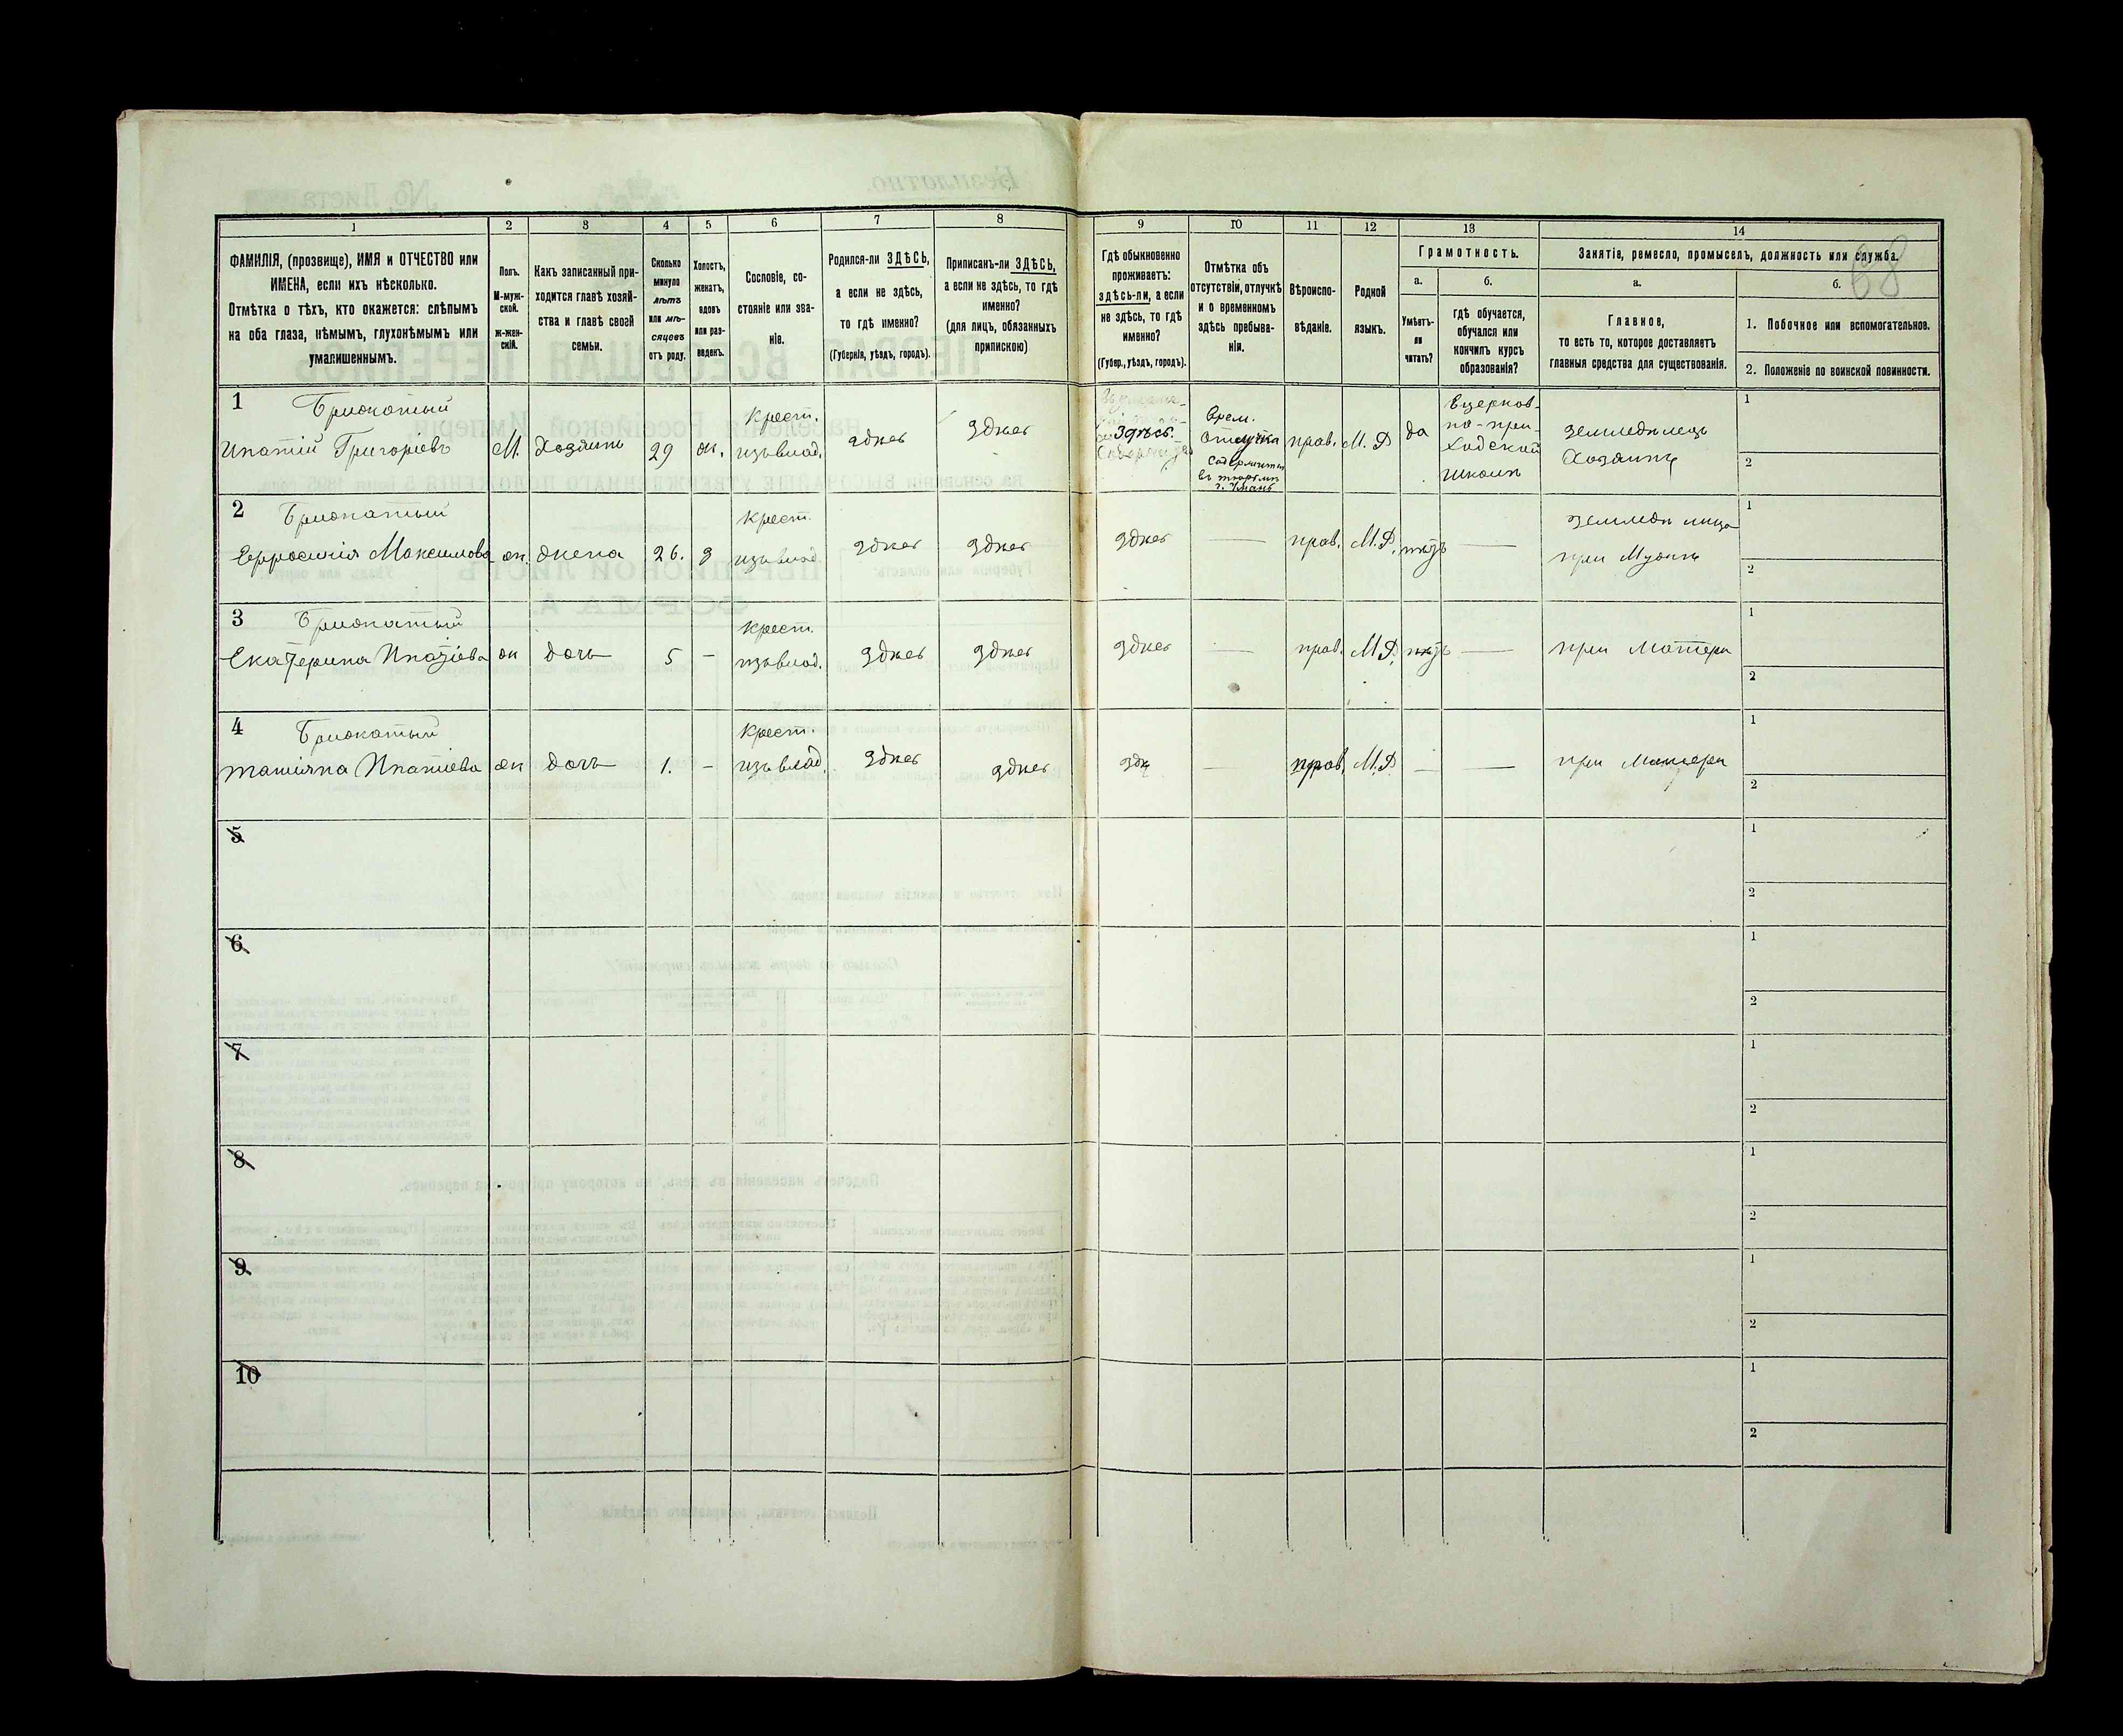 68
1
2
3
4
5
6
7
8
9
10
11
12
13
14
ФАМИЛІЯ, (прозвище), ИМЯ и ОТЧЕСТВО или
ИМЕНА, если ихъ нѣсколько.
Отмѣтка о тѣхъ, кто окажется: слѣпымъ
на оба глаза, нѣмымъ, глухонѣмымъ или
умалишеннымъ.
Полъ.
М-муж-
ской.
ж-жен-
скій.
Какъ записанный при-
ходится главѣ хозяй-
ства и главѣ своей
семьи.
Сколько
минуло
лѣтъ
или мѣ-
сяцевъ
отъ роду.
Холостъ,
женатъ,
вдовъ
или раз-
веденъ.
Сословіе, со-
стояніе или зва-
ніе.
Родился-ли ЗДѢСЬ,
а если не здѣсь,
то гдѣ именно?
(Губернія, уѣздъ, городъ).
Приписанъ-ли ЗДѢСЬ,
а если не здѣсь, то гдѣ
именно?
(для лицъ, обязанныхъ
припискою)
Гдѣ обыкновенно
проживаетъ:
здѣсь-ли, а если
не здѣсь, то гдѣ
именно?
(Губер., уѣздъ, городъ).
Отмѣтка объ
отсутствіи, отлучкѣ
и о временномъ
здѣсь пребыва-
ніи.
Вѣроиспо-
вѣданіе.
Родной
языкъ.
Грамотность.
а.
Умѣетъ-
ли
читать?
б.
гдѣ обучается,
обучался или
кончилъ курсъ
образованія?
Занятіе, ремесло, промыселъ, должность или служба.
а.
Главное,
то есть то, которое доставляетъ
главныя средства для существованія.
б.
1. Побочное или вспомогательное.
2. Положеніе по воинской повинности.
1
Ипатій Григоріевъ
М.
Хозяинъ
29
ж.
Крест.
изъ влад.
здѣсь
здѣсь
Здѣсь.
Врем.
отлучка
содержится
въ тюрьмѣ
г. Умань
прав.
М. Р
да
В церков-
но-при-
ходской
школѣ
земледѣлецъ
Хозяинъ
1
2
2
Максимова
ж.
жена
26.
з
Крест.
изъ влад.
здѣсь
здѣсь
здѣсь
—
прав.
М.Р.
нѣтъ
—
при Мужѣ
1
2
3
Екатерина Ипатіева
ж
дочь
5
–
Крест.
изъ влад.
здѣсь
здѣсь
здѣсь
—
прав.
М.Р.
нѣтъ
—
при Матери
1
2
4
Татіяна Ипатіева
ж
дочь
1.
–
Крест.
изъ влад.
здѣсь
здѣсь
здѣ
—
прав.
М.Р.
—
—
при Матери
1
2
5
1
2
6
1
2
7
1
2
8
1
2
9
1
2
10
1
2